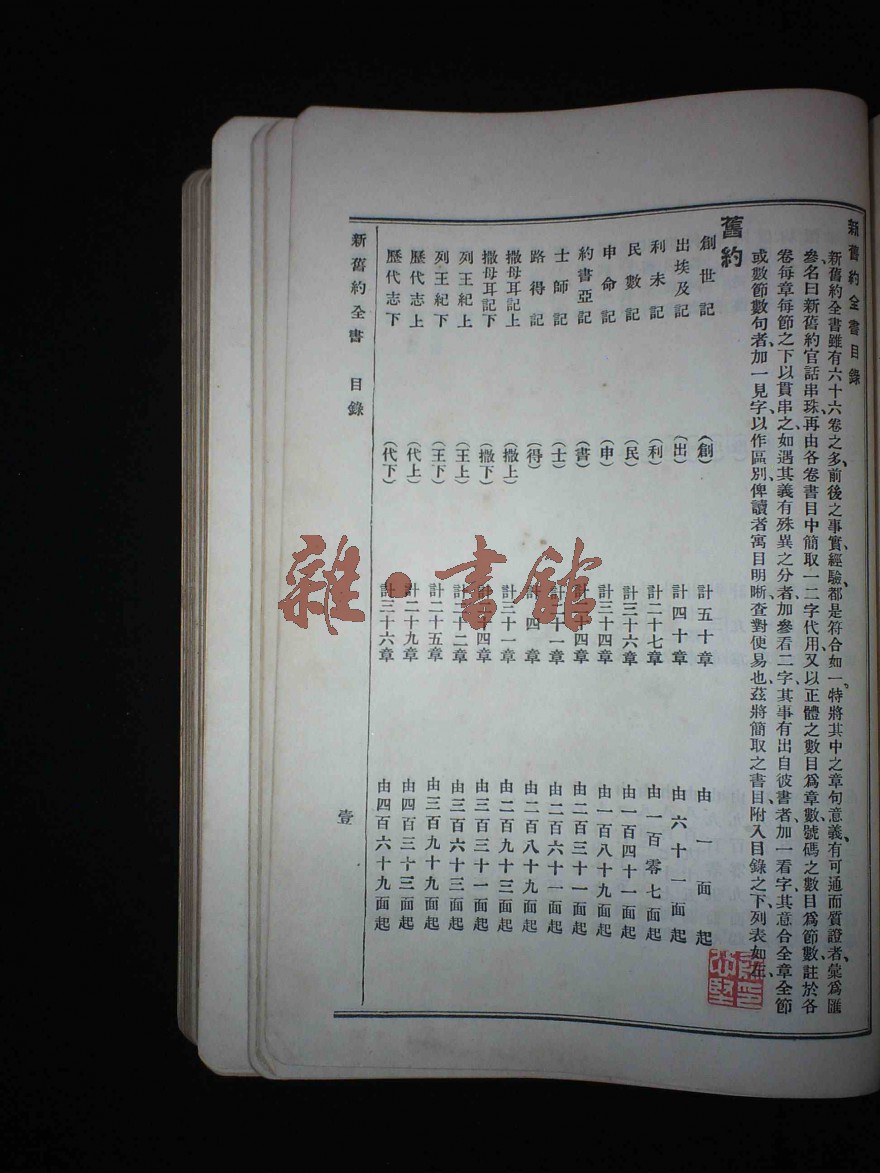 新舊約全書目錄
新舊約全書雖有六十六卷之多、前後之事實、經驗、都是符合如一、特將其中之章句意義、有可通而質證者、彙爲匯
參、名曰新舊約官話串珠、再由各卷書目中簡取一二字代用、又以正體之數目爲章數、號碼之數目爲節數、註於各
卷每章每節之下以貫串之、如遇其義有殊異之分者、加參看二字、其事有出自彼書者、加一看字、其意合全章全節
或數節數句者、加一見字、以作區別、俾讀者寓目明晰、查對便易也、茲將簡取之書目、附入目錄之下、列表如左、
舊約
創世記 (創) 計五十章 由一面起
出埃及記 (出) 計四十章 由六十一面起
利未記 (利) 計二十七章 由一百零七面起
民數記 (民) 計三十六章 由一百四十一面起
申命記 (申) 計三十四章 由一百八十九面起
約書亞記 (書) 計二十四章 由二百三十一面起
士師記 (士) 計二十一章 由二百六十一面起
路得記 (得) 計四章 由二百八十九面起
撒母耳記上 (撒上) 計三十一章 由二百九十三面起
撒母耳記下 (撒下) 計二十四章 由三百三十一面起
列王紀上 (王上) 計二十二章 由三百六十三面起
列王紀下 (王下) 計二十五章 由三百九十九面起
歷代志上 (代上) 計二十九章 由四百三十三面起
歷代志下 (代下) 計三十六章 由四百六十九面起
新舊約全書 目錄 壹
雜·書館